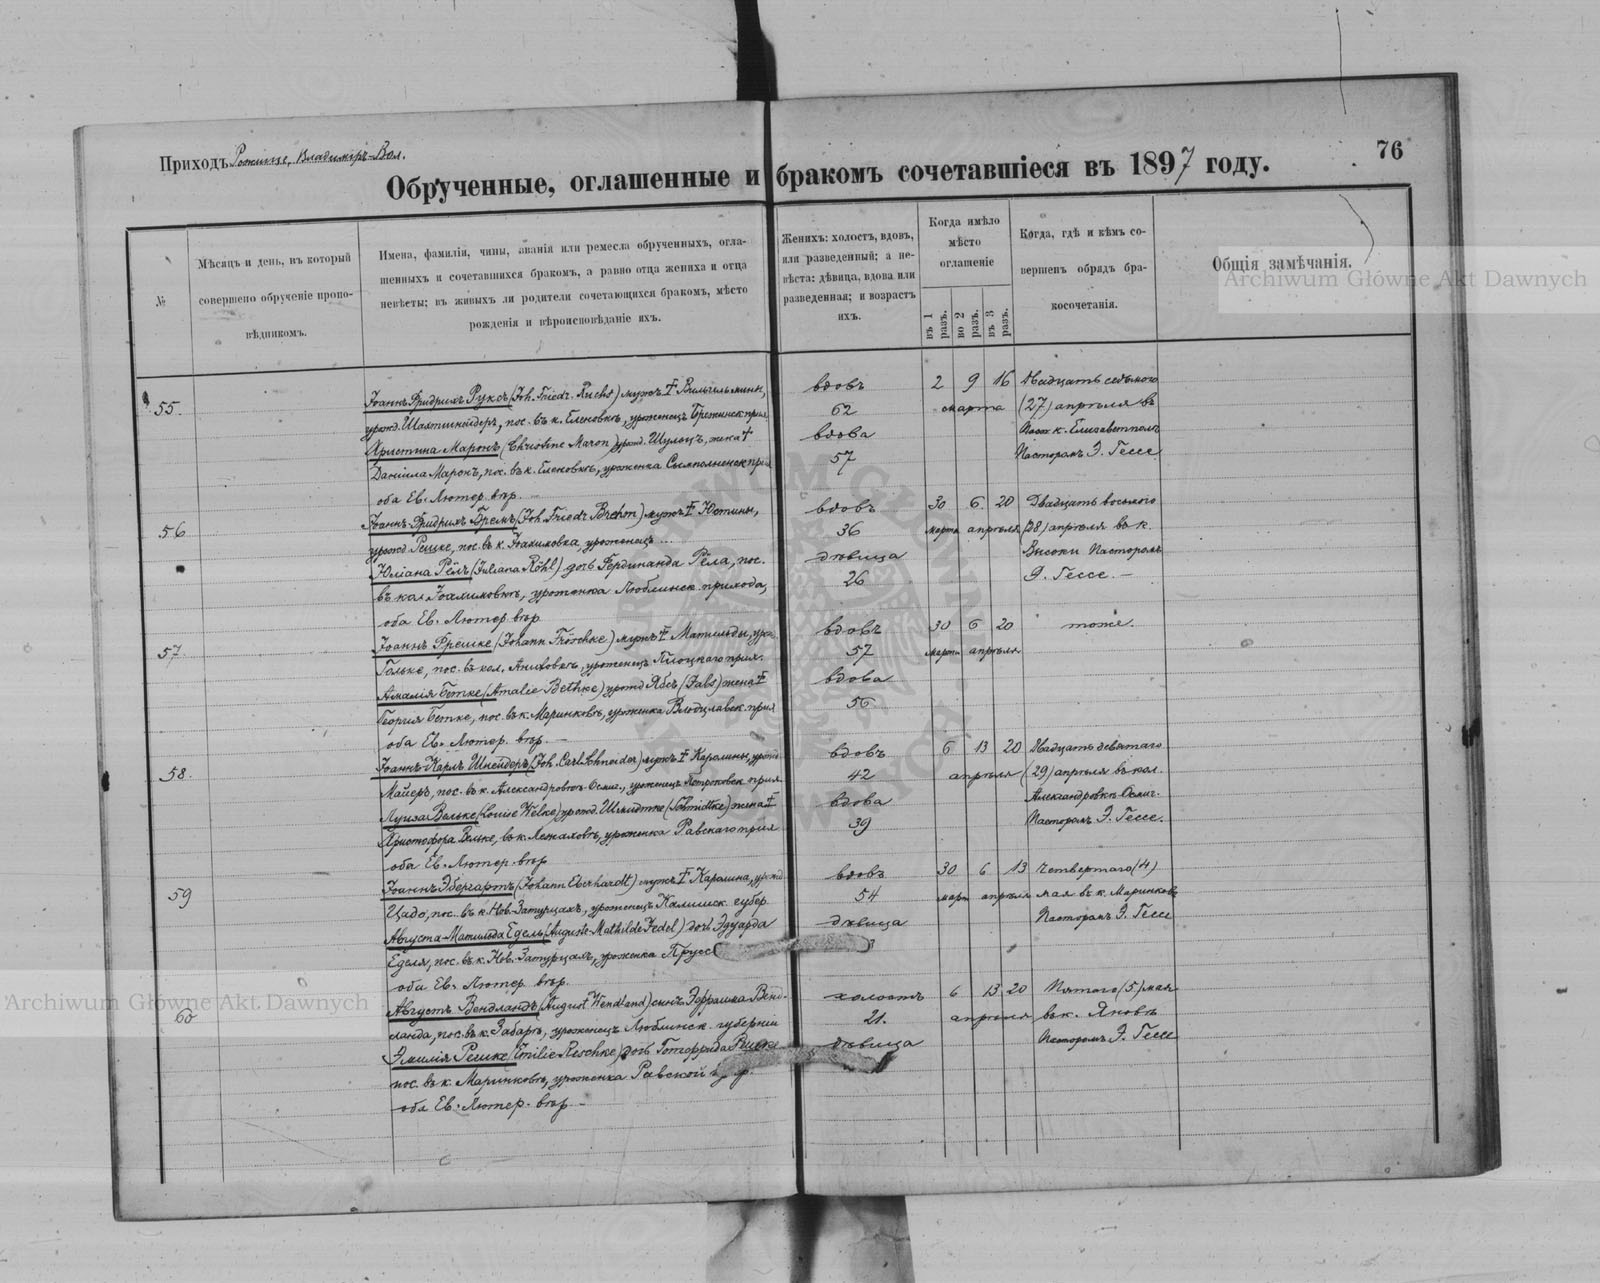 Приходъ Рожище, Владиміръ-Вол.
76
Обрученные, оглашенные и бракомъ сочетавшіеся въ 1897 году.
№
Мѣсяцъ и день, въ который
совершено обрученіе пропо-
вѣдникомъ.
Имена, фамиліи, чины, званія или ремесла обрученныхъ, огла-
шенныхъ и сочетавшихся бракомъ, а равно отца жениха и отца
невѣсты; въ живыхъ ли родители сочетающихся бракомъ, мѣсто
рожденія и вѣроисповѣданіе ихъ.
Женихъ: холостъ, вдовъ,
или разведенный; а не-
вѣста: дѣвица, вдова или
разведенная; и возрастъ
ихъ.
Когда имѣло
мѣсто
оглашеніе
въ 1 разъ.
во 2 разъ.
въ 3 разъ.
Когда, гдѣ и кѣмъ со-
вершенъ обрядъ бра-
косочетанія.
Общія замѣчанія.
Archiwum Główne Akt Dawnych
55.
Іоаннъ Фридрихъ Руксъ (Joh. Friedr. Ruchs) мужъ † Вильгельмины,
урожд. Шахтшнейдеръ, пос. въ к. Еленовкѣ, уроженецъ
Христина Маронъ (Christine Maron) урожд. Шульцъ, жена †
Даніила Маронъ, пос. въ к. Еленовкѣ, уроженка
оба Ев. Лютер. вѣр.
вдовъ
62
вдова
57
2 9 16
марта
Двадцать седьмого
(27) апрѣля въ
к. Елизаветполь
Пасторомъ Э. Гессе
56
Іоаннъ-Фридрихъ Бремъ (Joh. Friedr Brehm) мужъ † Юстины,
урожд Рецке, пос. въ к. Іоахимовка, уроженецъ ...
Юліана Рёлъ (Juliana Röhl) дочь Фердинанда Рёла, пос.
въ кол Іоахимовкѣ, уроженка Люблинск. прихода,
оба Ев. Лютер. вѣр
вдовъ
36
дѣвица
26
30 6 20
марта апрѣля
Двадцать восьмого
(28) апрѣля въ к.
Высоки Пасторомъ
Э. Гессе. —
57.
Іоаннъ Фрёшке (Johann Fröschke) мужъ † Матильды, урож.
Гольке, пос. въ кол. Аниховкѣ, уроженецъ Плоцкаго прих.
Амалія Бетке (Amalie Bethke) урожд Ябсъ (Jabs) жена †
Георгія Бетке, пос. въ к. Маринковѣ, уроженка Влоцлавск. прих
оба Ев. Лютер. вѣр. —
вдовъ
57
вдова
56
30 6 20
марта апрѣля
тоже.
58.
Іоаннъ-Карлъ Шнейдеръ (Joh. Carl Schneider) мужъ † Каролины, урожд
Майеръ, пос. въ к. Александровкѣ-Осмиг., уроженецъ Петроковск прих
Луиза Вельке (Louise Welke) урожд. Шмидтке (Schmidtke) жена †
Христофора Вельке, въ к. , уроженка Равскаго прих
оба Ев. Лютер. вѣр
вдовъ
42
вдова
39
6 13 20
апрѣля
Двадцать девятаго
(29) апрѣля въ кол.
Александровкѣ Осмиг.
Пасторомъ Э. Гессе.
59
Іоаннъ Эбергартъ (Johann Eberhardt) мужъ † Каролина, урожд
Цадо, пос. въ к. Нов.-Затурцахъ, уроженецъ Калишск. губер
Августа-Матильда Едель (Auguste-Mathilde Jedel) дочь Эдуарда
Еделя, пос. въ к. Нов.-Затурцахъ, уроженка Прусс
оба Ев. Лютер. вѣр.
вдовъ
54
дѣвица
30 6 13
март апрѣля
Четвертаго (4)
мая въ к. Маринковѣ
Пасторомъ Э. Гессе
60
Августъ Вендландъ (August Wendland) сынъ Эфраима Венд-
ланда, пос. въ к. Забара, уроженецъ Люблинск. губерніи
Эмилія Решке (Emilie Reschke) дочь Готфрида Решке
пос. въ к. Маринковѣ, уроженка Равской
оба Ев. Лютер. вѣр —
холостъ
21.
дѣвица
6 13 20
апрѣля
Пятого (5) мая
въ к. Яновкѣ
Пасторомъ Э. Гессе
Archiwum Główne Akt Dawnych